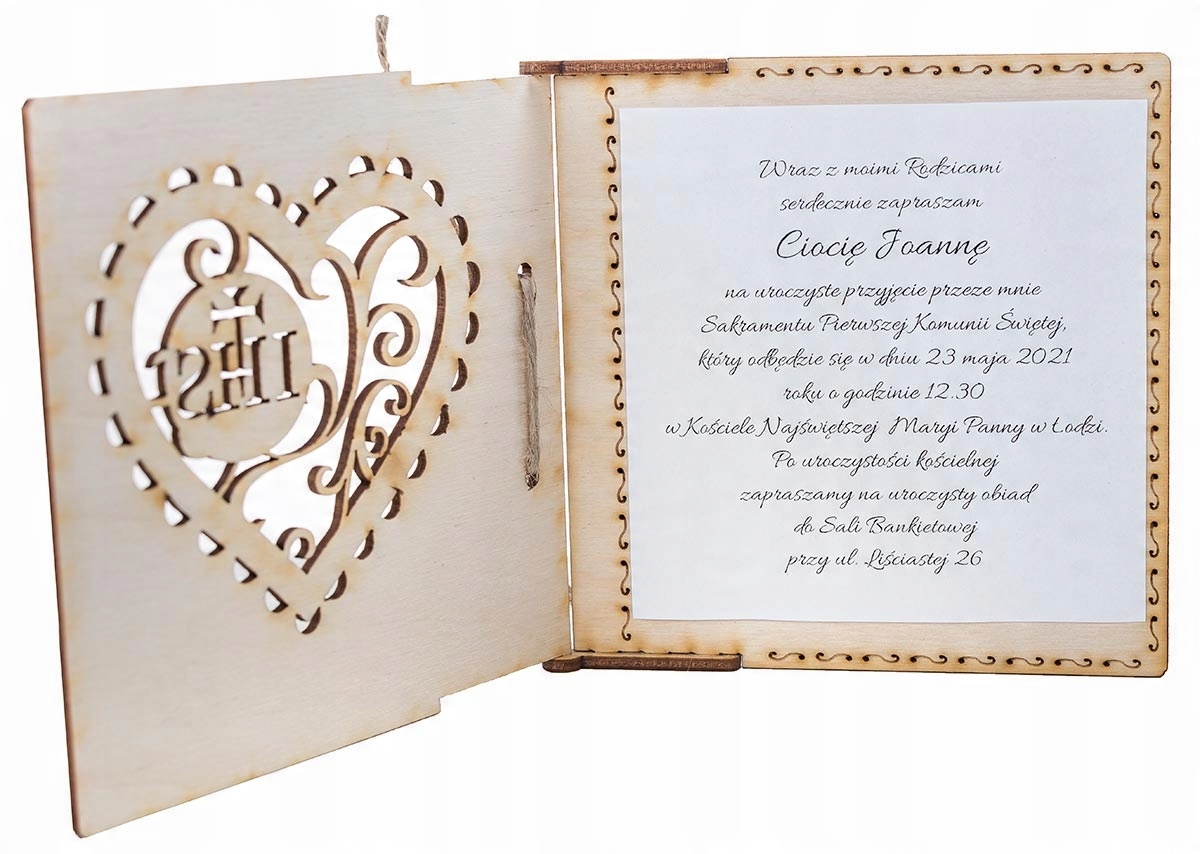 IHS
Wraz z moimi Rodzicami
serdecznie zapraszam
Ciocię Joannę
na uroczyste przyjęcie przeze mnie
Sakramentu Pierwszej Komunii Świętej,
który odbędzie się w dniu 23 maja 2021
roku o godzinie 12.30
w Kościele Najświętszej Maryi Panny w Łodzi.
Po uroczystości kościelnej
zapraszamy na uroczysty obiad
do Sali Bankietowej
przy ul. Liściastej 26